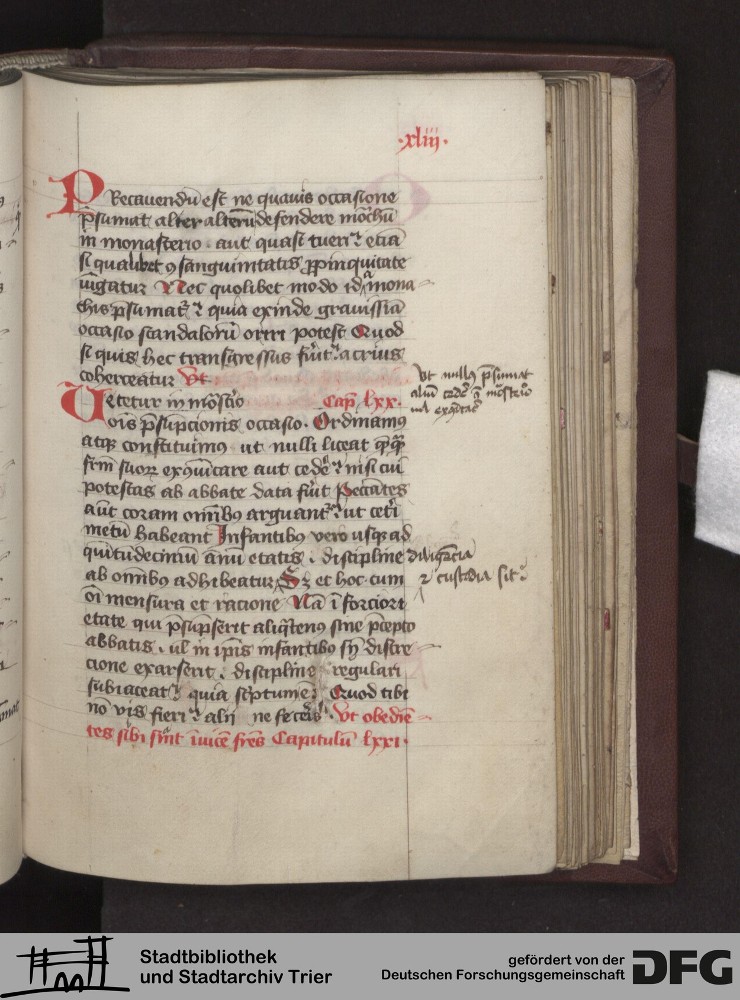 ·xliii·
Recauendū est ne quauis occasione
p̄sumat alter alterū defendere mōchū
in monasterio · aut quasi tueri ⁊ etiā
si qualibet ꝯsanguinitatis ꝓpinquitate
iūgatur Nec quolibet modo id a mona
chis p̄sumat᷑ ⁊ quia exinde grauissīa
occasio scandalorū oriri potest Quod
si quis hec transgressus fūit᷑ acrius
coherceatur Vt
Vetetur in mōst̄io Cap̄ lxx·
ois p̄sūpcionis occasio · Ordinamꝰ
atqꝫ constituimꝰ ut nulli liceat qēqȝ
fr̄m suoꝝ exc̄ōicare aut cedē᷑ ⁊ nisi cui
potestas ab abbate data fūit Peccātes
aūt coram omībꝰ arguant᷑ ⁊ ut cet̄i
metū habeant Infantibꝰ vero usqꝫ ad
quītūdecimū annū etatis · discipline
ab omībꝰ adhibeatur Sꝫ et hoc cum
oī mensura et racione Nā ī forciori
etate qui p̄sūpserit aliq̄tenꝰ sine p̄cepto
abbatis · ul in ip̄is infantibꝰ sn̄ discre
cione exarserit · discipline regulari
subiaceat᷑ quia sc̄ptum ē Quod tibi
nō vis fieri ⁊ alij ne fecēis · Vt obediē
tes sibi sint īuicē fr̄es Capitulū lxxi·
Vt nullꝰ p̄sumat
aliū cedē᷑ ī mōst̄rio
diligēcia
⁊ custodia sit ·
Stadtbibliothek
und Stadtarchiv Trier
gefördert von der
Deutschen Forschungsgemeinschaft
DFG